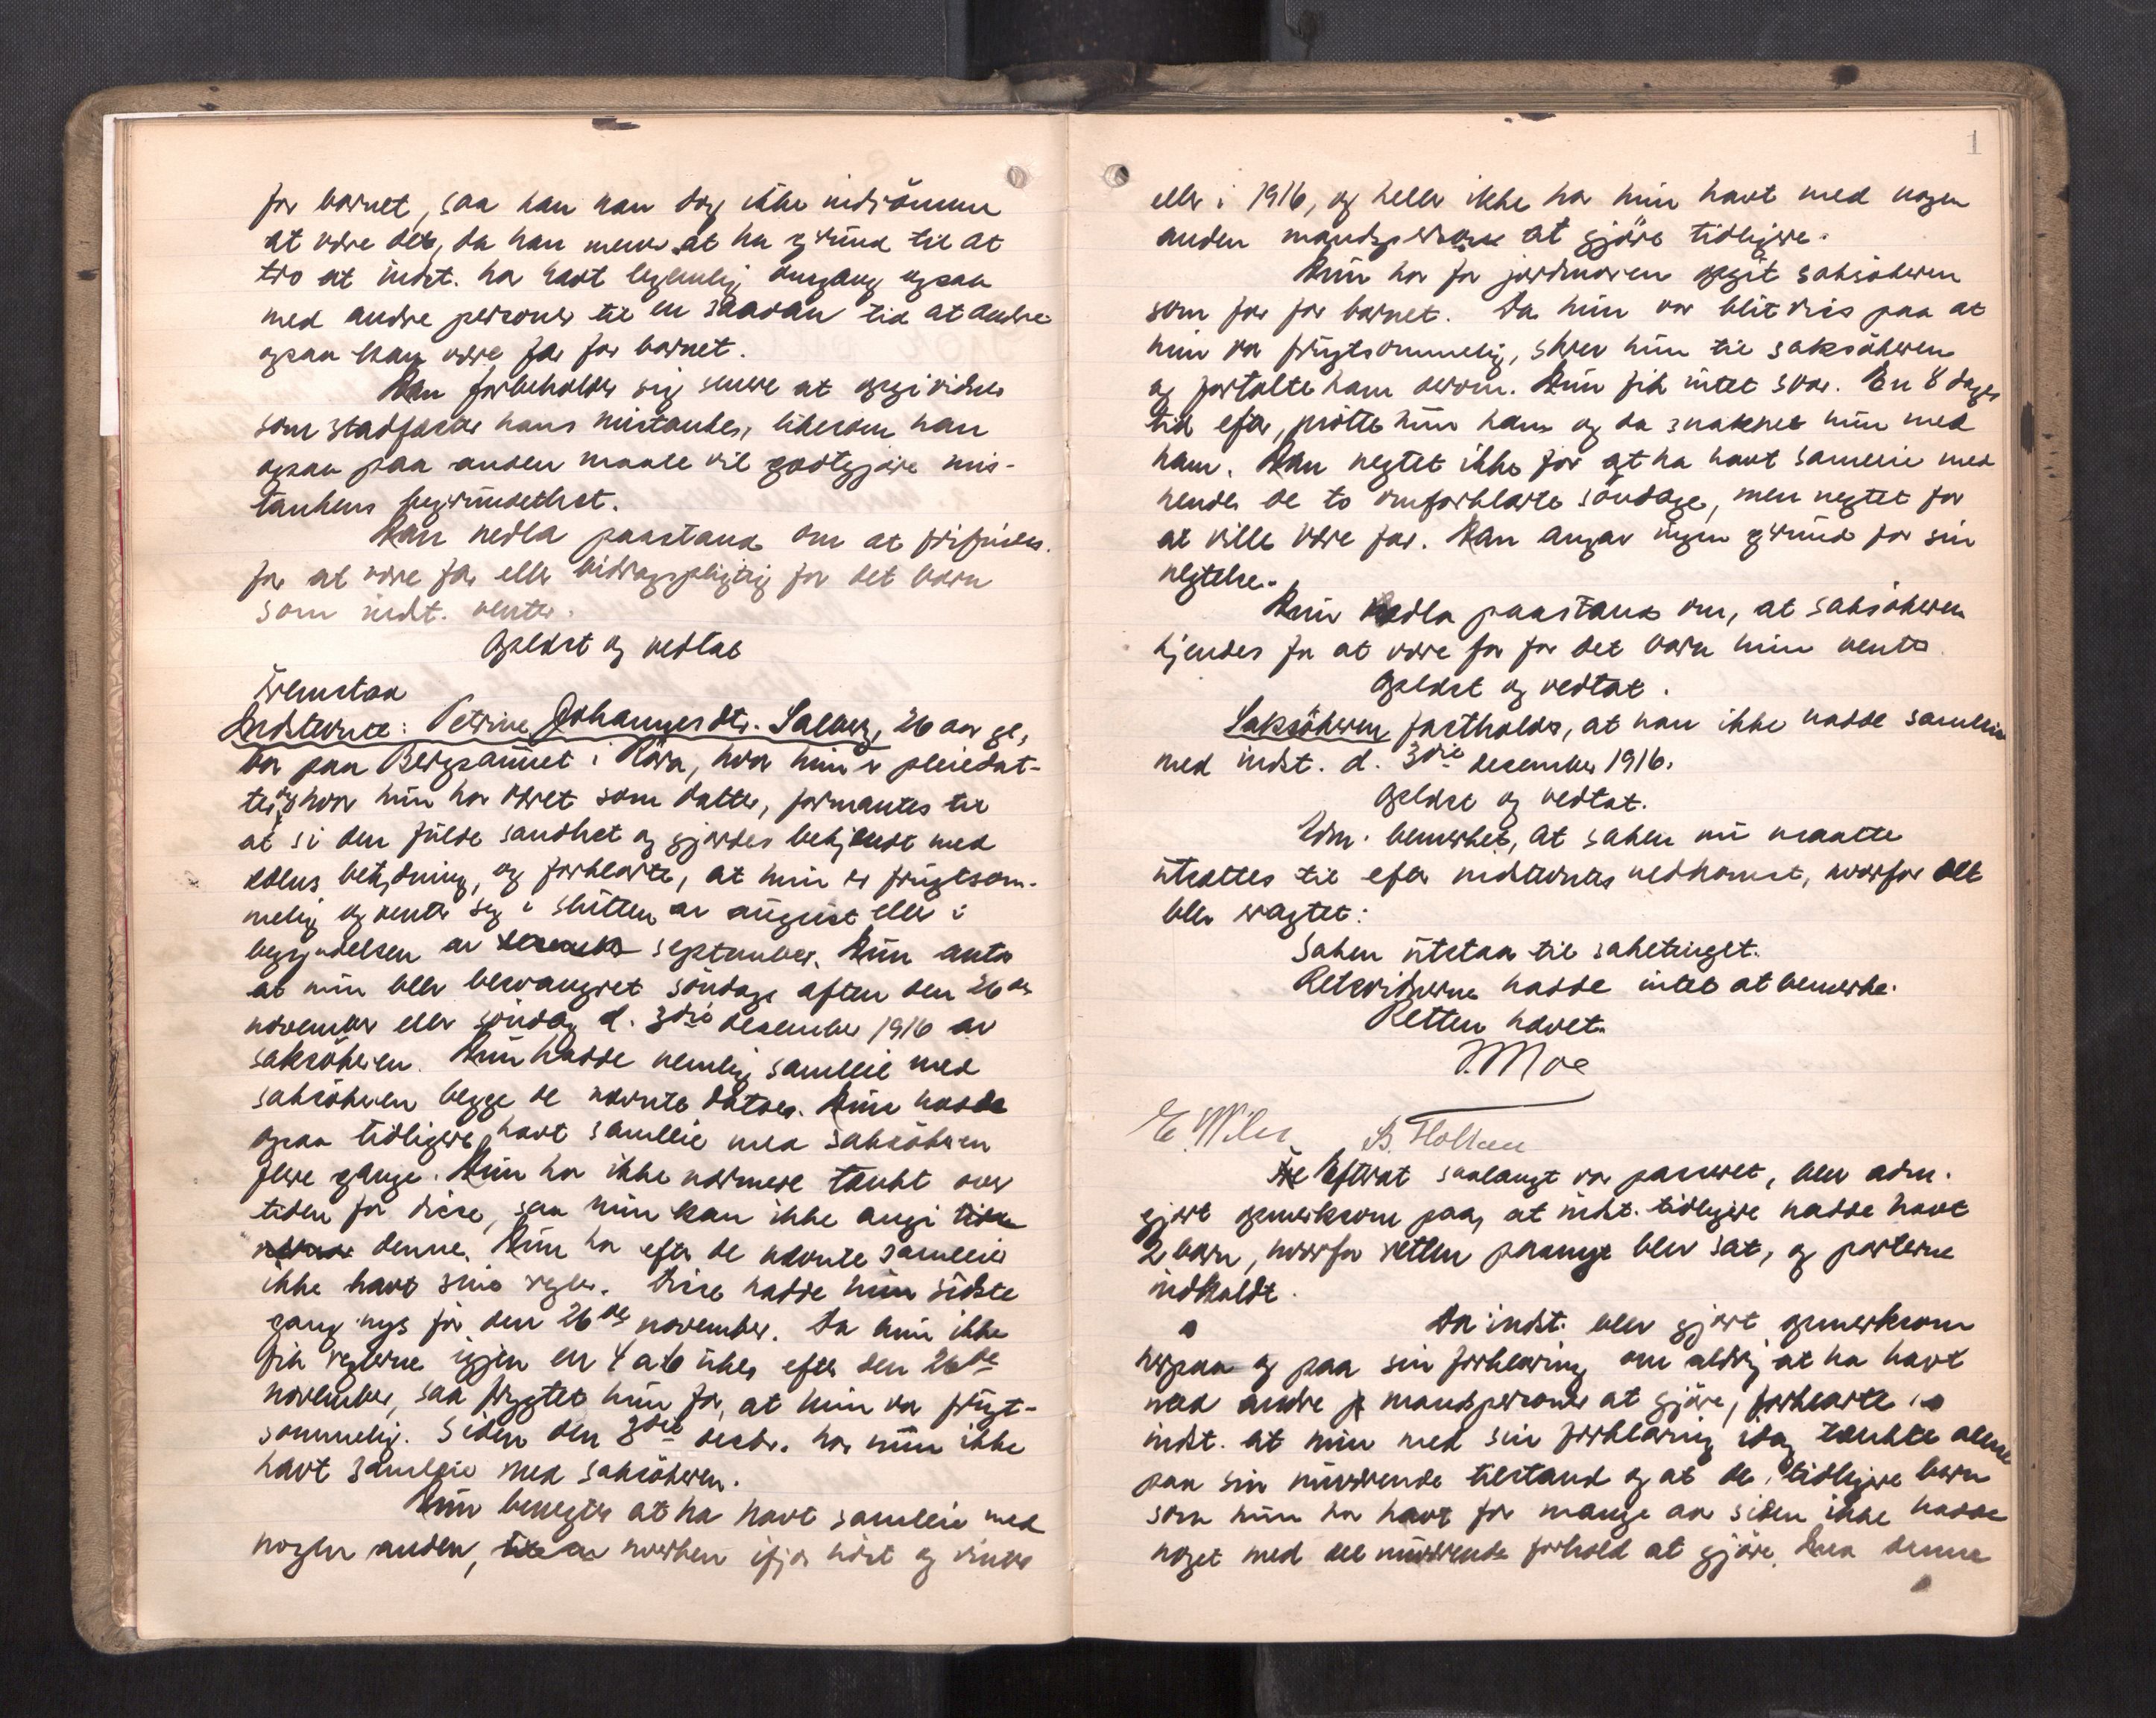 for barnet, saa kan han dog ikke indrömme
at være det, da han mener at ha grund til at
tro at indst. har havt legemlig omgang ogsaa
med andre personer til en saadan tid at andre
ogsaa kan være far for barnet.
Han forbeholder sig senere at opgi vidner
som stadfæster hans mistanke, likesom han
ogsaa paa anden maate vil godtgjøre mis-
tankens begrundethet.
Han nedla paastand om at frifindes
for at være far eller bidragspligtig for det barn
som indst. venter.
Oplæst og vedtat
Fremstod
Indstevnte: Petrine Johannesdtr. Salberg, 26 aar gl,
bor paa Bergsaunet i Röra, hvor hun er pleiedat-
ter og hvor hun har været som datter, formantes til
at si den fulde sandhet og gjordes bekjendt med
edens betydning, og forklarte, at hun er frugtsom-
melig og venter sig i slutten av august eller i
begyndelsen av september. Hun antar
at hun blev besvangret söndags aften den 26de
november eller söndag d. 3die desember 1916 av
saksökeren. Hun hadde nemlig samleie med
saksökeren begge de nævnte datoer. Hun hadde
ogsaa tidligere havt samleie med saksökeren
flere gange. Hun har ikke nærmere tænkt over
tiden for disse, saa hun kan ikke angi
denne. Hun har efter de nævnte samleier
ikke havt sine regler. Disse hadde hun sidste
gang nys för den 26de november. Da hun ikke
fik reglerne igjen en 4 a 6 uker efter den 26de
november, saa frygtet hun for, at hun var frugt-
sommelig. Siden den 3die desbr. har hun ikke
havt samleie med saksökeren.
Hun benegter at ha havt samleie med
nogen anden, hverken ifjor höst og vinter
1
eller i 1916, og heller ikke har hun havt med nogen
anden mandsperson at gjöre tidligere.
Hun har for jordmoren opgit saksökeren
som far for barnet. Da hun var blit viss paa at
hun var frugtsommelig, skrev hun til saksökeren
og fortalte ham derom. Hun fik intet svar. En 8 dages
tid efter, mötte hun ham og da snakket hun med
ham. Han negtet ikke for at ha havt samleie med
hende de to omforklarte söndage, men negtet for
at ville være far. Han angav ingen grund for sin
negtelse.
Hun nedla paastand om, at saksökeren
kjendes for at være far for det barn hun venter.
Oplæst og vedtat.
Saksökeren fastholder, at han ikke hadde samleie
med indst. d. 3die desember 1916.
Oplæst og vedtat.
Adm. bemerket, at saken nu maatte
utsættes til efter indstevntes nedkomst, hvorfor det
blev vagtet:
Saken utstaar til saketinget.
Retsvidnerne hadde intet at bemerke.
Retten hævet.
J. Moe
E. Wiker B. Flotten
Efterat saalangt var passeret, blev adm.
gjort opmerksom paa, at indst. tidligere hadde havt
2 barn, hvorfor retten paanyt blev sat, og parterne
indkaldt.
Da indst. blev gjort opmerksom
herpaa og paa sin forklaring om aldrig at ha havt
med andre mandspersoner at gjöre, forklarte
indst. at hun med sin forklaring idag tænkte alene
paa sin nuværende tilstand og at de tidligere barn
som hun har havt for mange aar siden ikke hadde
noget med det nuværende forhold at gjöre. denne